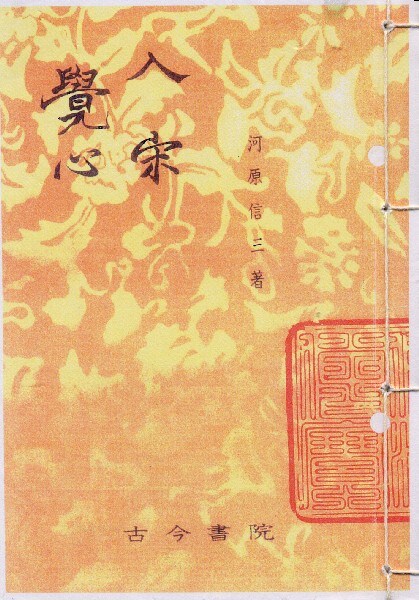 入宋
覺心
河原信三著
古今書院